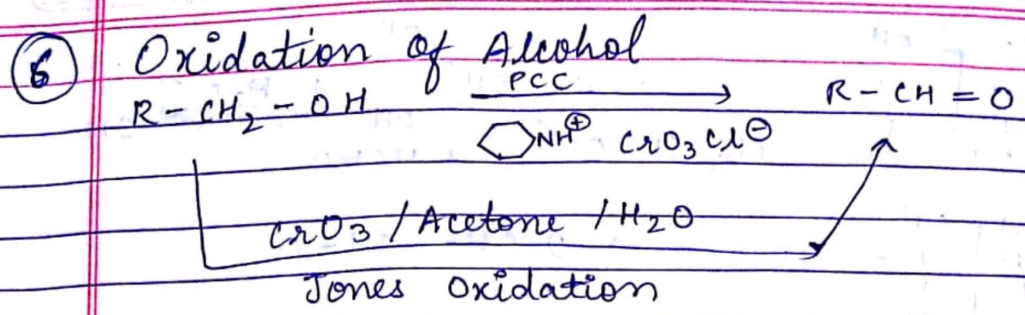 6 Oxidation of Alcohol
PCC
R-CH₂-OH R-CH=O
NH⊕ CrO₃Cl⊖
CrO₃/Acetone/H₂O
Jones Oxidation